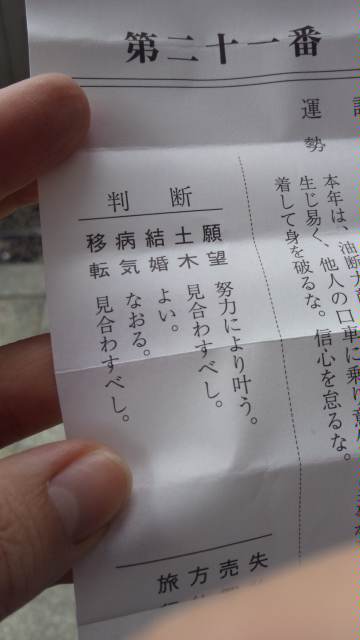 第二十一番
運勢
本年は、油断
生じ易く、他人の口車に乗り
着して身を破るな。信心を怠るな。
判断
願望 努力により叶う。
土木 見合わすべし。
結婚 よい。
病気 なおる。
移転 見合わすべし。
失
売
方
旅